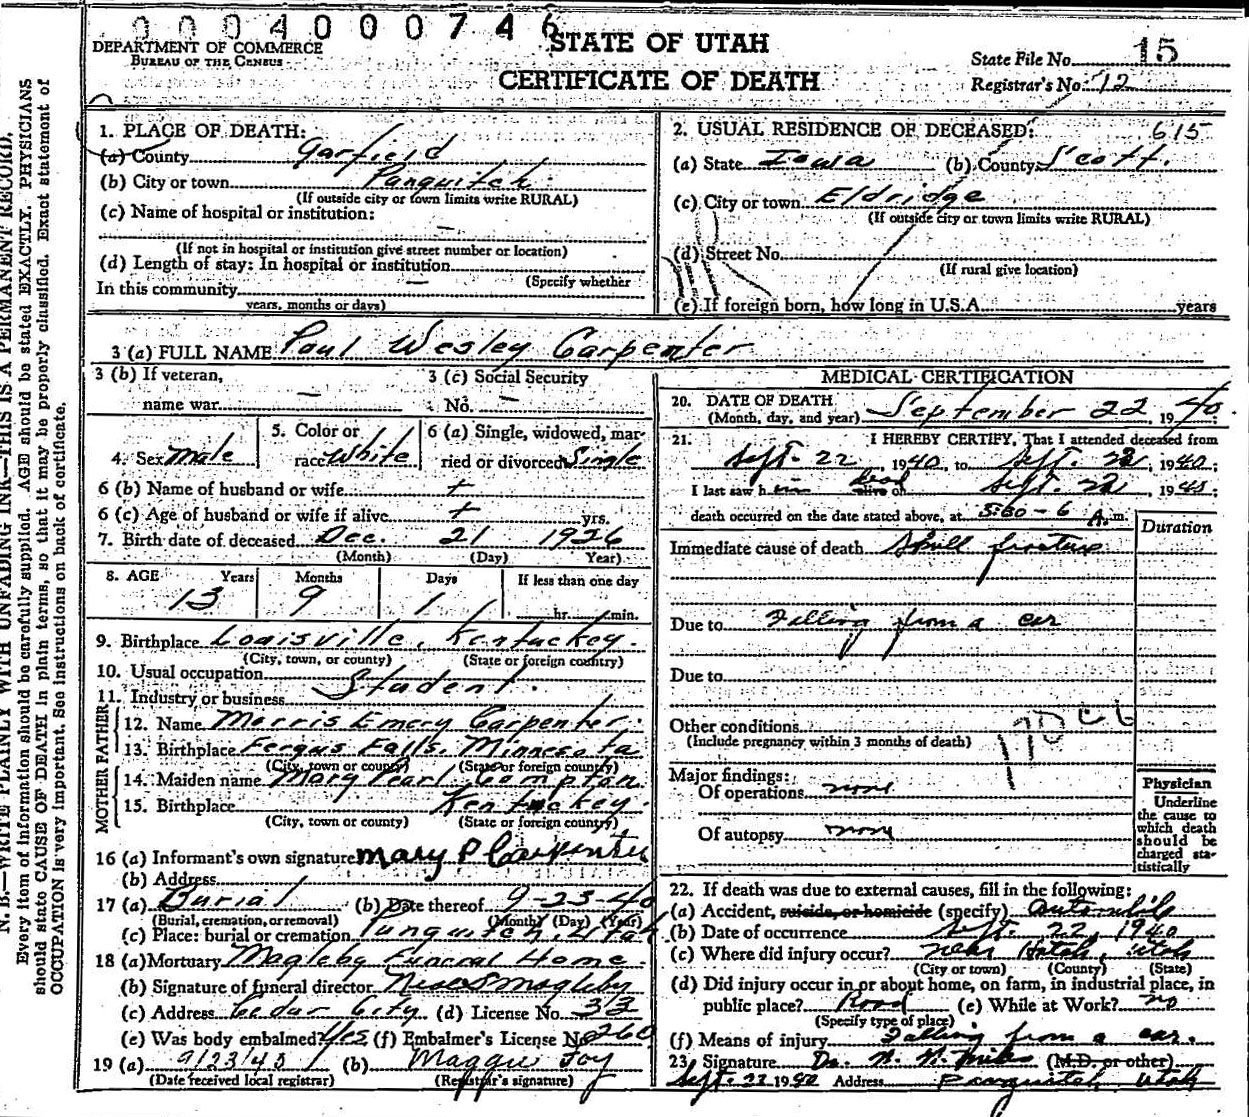 0 0 0 4 0 0 0 7 4 6
DEPARTMENT OF COMMERCE
BUREAU OF THE CENSUS
STATE OF UTAH
CERTIFICATE OF DEATH
State File No. 15
Registrar's No. 12
1. PLACE OF DEATH:
(a) County Garfield
(b) City or town Panguitch
(If outside city or town limits write RURAL)
(c) Name of hospital or institution:
—
(If not in hospital or institution give street number or location)
(d) Length of stay: In hospital or institution
(Specify whether
In this community —
years, months or days)
2. USUAL RESIDENCE OF DECEASED: 615
(a) State Iowa (b) County Scott.
(c) City or town Eldridge
(If outside city or town limits write RURAL)
(d) Street No.
(If rural give location)
(e) If foreign born, how long in U.S.A. years
3 (a) FULL NAME Paul Wesley Carpenter
3 (b) If veteran, 3 (c) Social Security
name war — No. —
4. Sex Male 5. Color or race White 6 (a) Single, widowed, married or divorced Single
6 (b) Name of husband or wife +
6 (c) Age of husband or wife if alive + yrs.
7. Birth date of deceased Dec. 21 1926
(Month) (Day) Year)
8. AGE Years Months Days If less than one day
13 9 1 hr. min.
9. Birthplace Louisville, Kentuckey.
(City, town, or county) (State or foreign country)
10. Usual occupation Student.
11. Industry or business
FATHER
12. Name Morris Emery Carpenter.
13. Birthplace Fergus Falls, Minnesota
(City, town or county) (State or foreign country)
MOTHER
14. Maiden name Mary Pearl Compton
15. Birthplace Kentuckey.
(City, town or county) (State or foreign country)
16 (a) Informant's own signature Mary P Carpenter
(b) Address
17 (a) Burial (b) Date thereof 9-23-40
(Burial, cremation, or removal) (Month) (Day) (Year)
(c) Place: burial or cremation Panguitch, Utah
18 (a) Mortuary Magleby Funeral Home.
(b) Signature of funeral director Magleby
(c) Address Cedar City (d) License No. 313
(e) Was body embalmed? Yes (f) Embalmer's License No. 260
19 (a) 9/23/40 (b) Maggie Foy
(Date received local registrar) (Registrar's signature)
MEDICAL CERTIFICATION
20. DATE OF DEATH
(Month, day, and year) September 22, 1940.
21. I HEREBY CERTIFY, That I attended deceased from
Sept. 22, 1940, to Sept. 22, 1940;
I last saw him dead alive on Sept. 22, 1940;
death occurred on the date stated above, at 5:30-6 A.m.
Duration
Immediate cause of death Skull fracture
Due to Falling from a car
Due to
Other conditions
(Include pregnancy within 3 months of death)
Major findings:
Of operations none
Of autopsy none
Physician
Underline
the cause to
which death
should be
charged sta-
tistically
22. If death was due to external causes, fill in the following:
(a) Accident, suicide, or homicide (specify) Automobile
(b) Date of occurrence Sept. 22, 1940
(c) Where did injury occur? near Hatch, Utah
(City or town) (County) (State)
(d) Did injury occur in or about home, on farm, in industrial place, in
public place? Road (e) While at Work? no
(Specify type of place)
(f) Means of injury Falling from a car.
23. Signature Dr. (M.D. or other)
Sept. 22 1940 Address Panguitch Utah
N. B.—WRITE PLAINLY WITH UNFADING INK—THIS IS A PERMANENT RECORD.
Every item of information should be carefully supplied. AGE should be stated EXACTLY. PHYSICIANS
should state CAUSE OF DEATH in plain terms, so that it may be properly classified. Exact statement of
OCCUPATION is very important. See instructions on back of certificate.